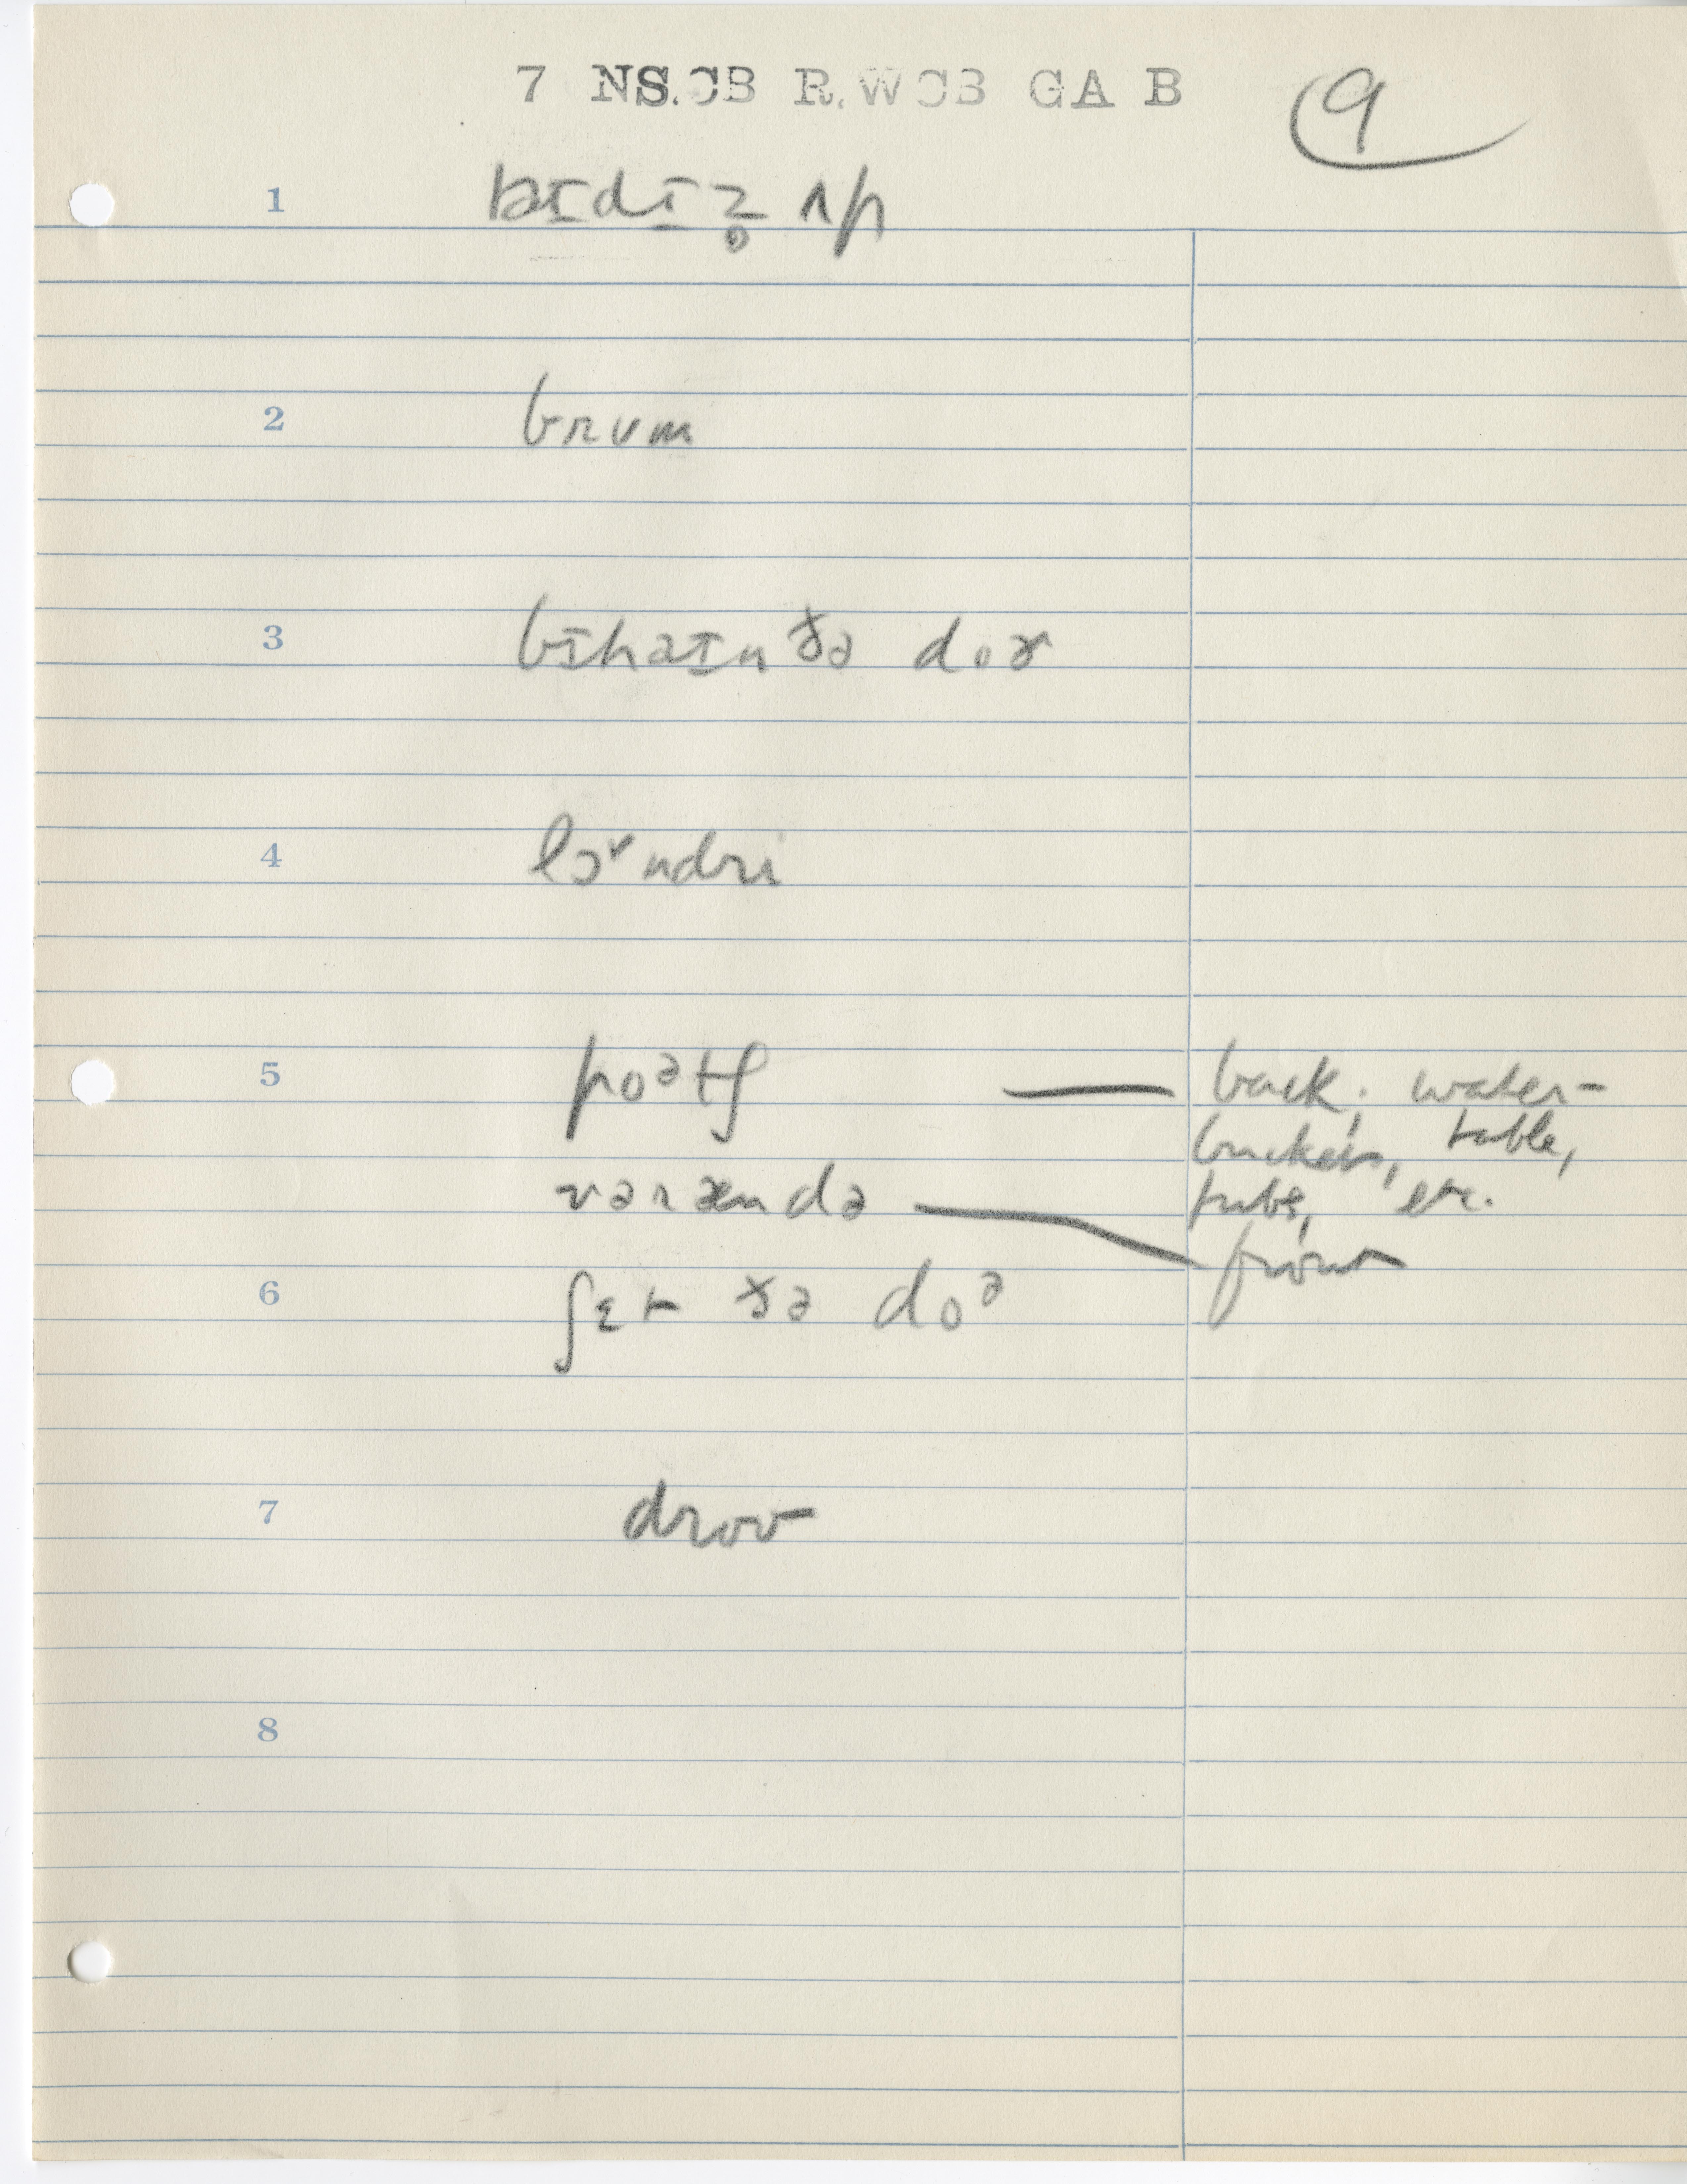 7 NS.CB R.WCB GA B 9
1 tɪdɪz̥ ʌp
2 brum
3 bɪhaɪn ðə doɚ
4 lɔ˅ndri
5 poᵊtʃ — back; water-
buckets, table,
tubs, etc.
vərændə — front
6 ʃɛt ðə doᵊ
7 droʊ
8